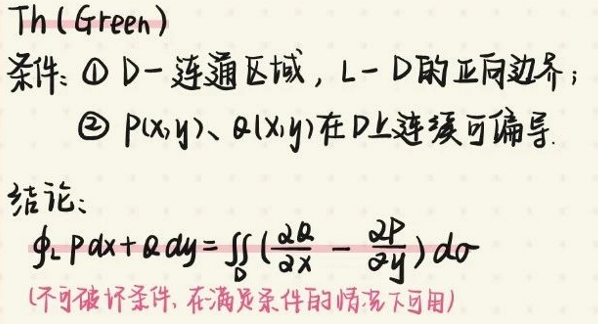 Th(Green)
条件: ① D-连通区域, L-D的正向边界;
② P(x,y)、Q(x,y)在D上连续可偏导.
结论:
∮_L Pdx+Qdy=∬_D(∂Q/∂x - ∂P/∂y)dσ
(不可破坏条件, 在满足条件的情况下可用)